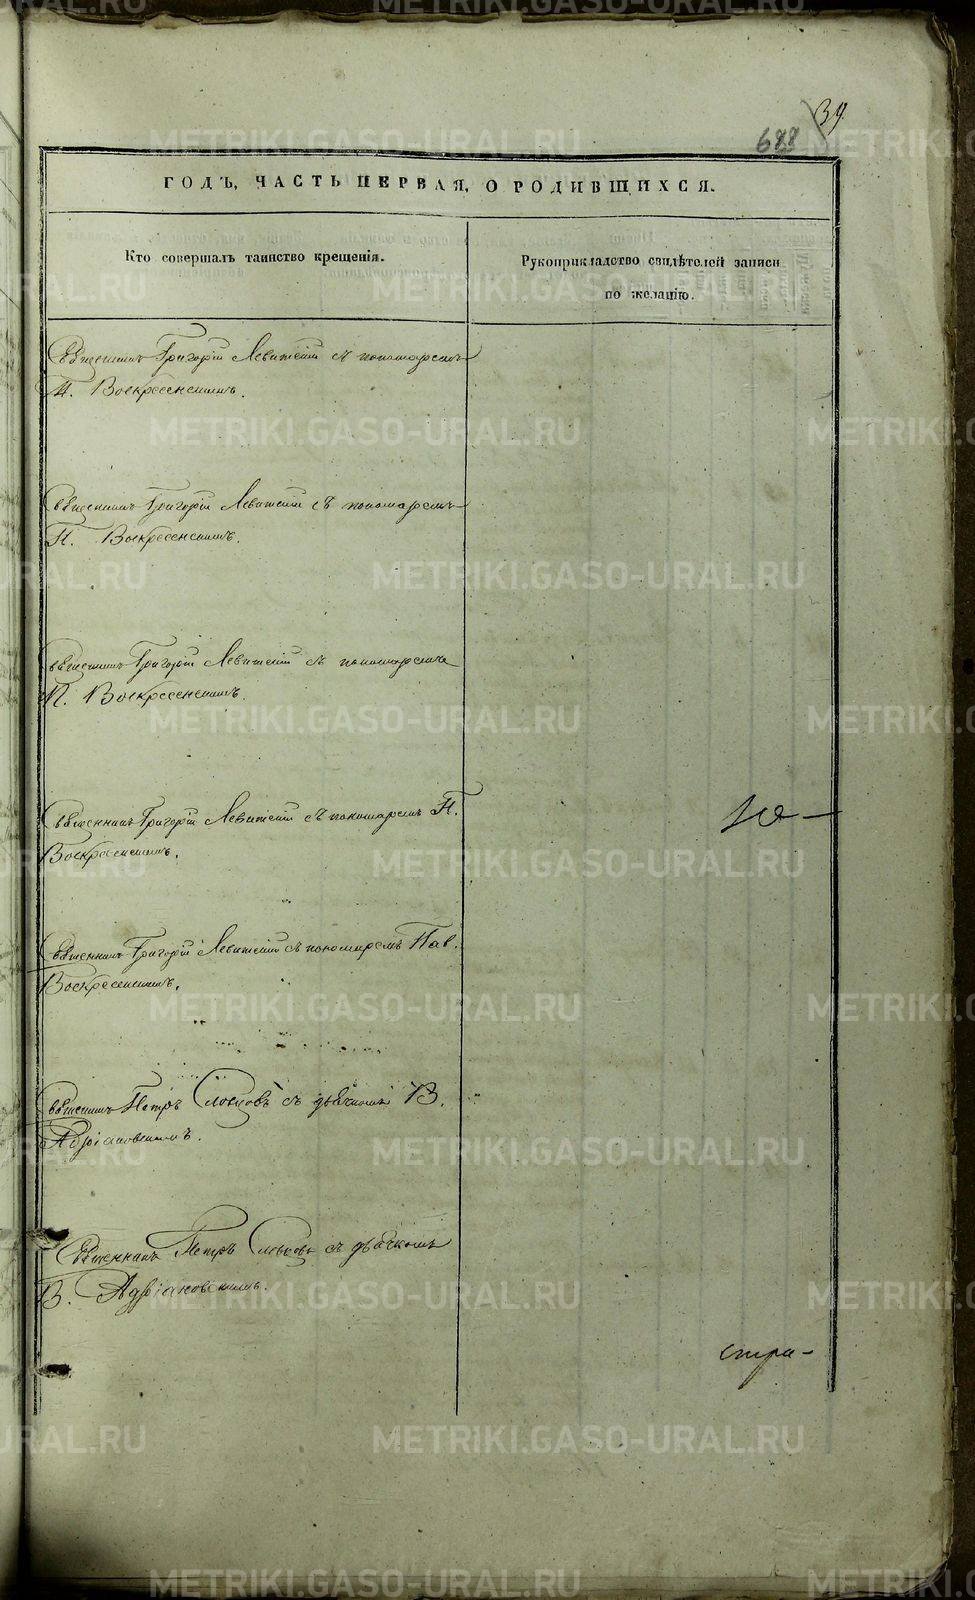 39
688
ГОДЪ, ЧАСТЬ ПЕРВАЯ, О РОДИВШИХСЯ.
Кто совершалъ таинство крещенія.
Рукоприкладство свидѣтелей записи
по желанію.
Священникъ Григорій Левитскій съ пономаремъ
П. Воскресенскимъ.
Священникъ Григорій Левитскій съ пономаремъ
П. Воскресенскимъ.
Священникъ Григорій Левитскій съ пономаремъ
П. Воскресенскимъ.
Священникъ Григорій Левитскій съ пономаремъ П.
Воскресенскимъ.
Ю-
Священникъ Григорій Левитскій съ пономаремъ Пав.
Воскресенскимъ.
Священникъ Петръ Словцовъ съ дьячкомъ В.
Адріановскимъ.
Священникъ Петръ Словцовъ съ дьячкомъ
В. Адріановскимъ.
стра-
METRIKI.GASO-URAL.RU